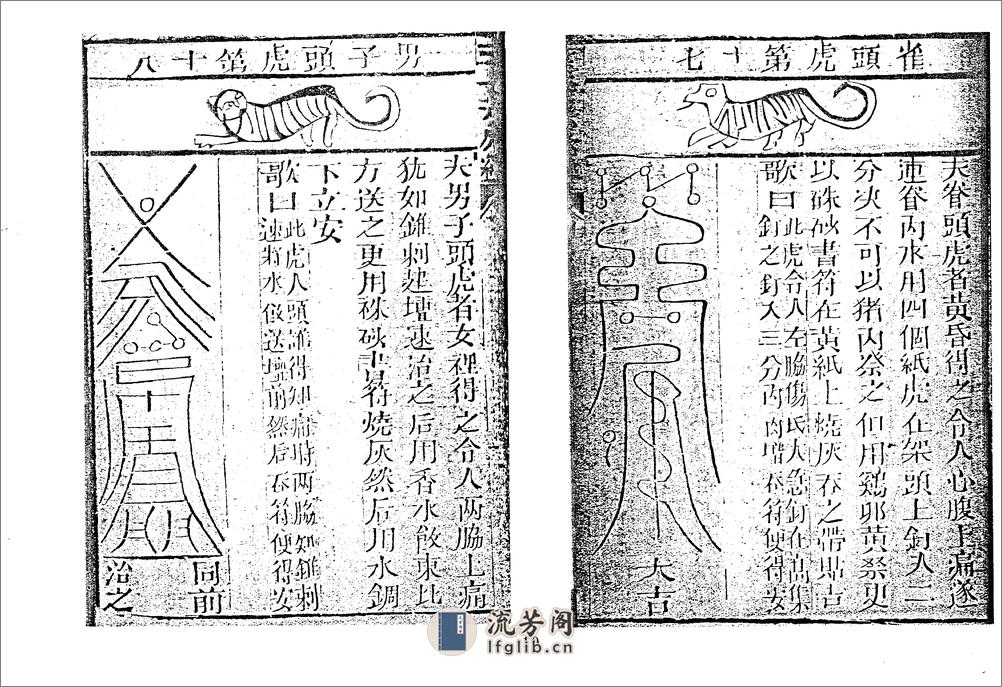 雀頭虎第十七
夫脊頭虎者黃昏得之令人心腹上痛遂
連脊內水用四個紙虎在架頭上釘入二
分決不可以猪肉祭之但用鷄卵黃祭更
以硃砂書符在黃紙上燒灰吞之帶
歌曰此虎令人左脇傷
釘之釘入三分內吞符便得安
大吉
男子頭虎第十八
夫男子頭虎者女裡得之令人两脇上痛
犹如錐刺建壇速治之后用香水飲東北
方送之更用硃砂書符燒灰然后用水調
下立安
歌曰此虎人頭誰得知痛時两脇如錐刺
速將水飯送壇前然后吞符便得安
同前
治之
流芳阁
lfglib.cn